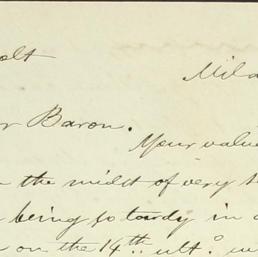 olt
Mila
r Baron.
Your value
n the midst of very
being so tardy in
on the 14th ult.o